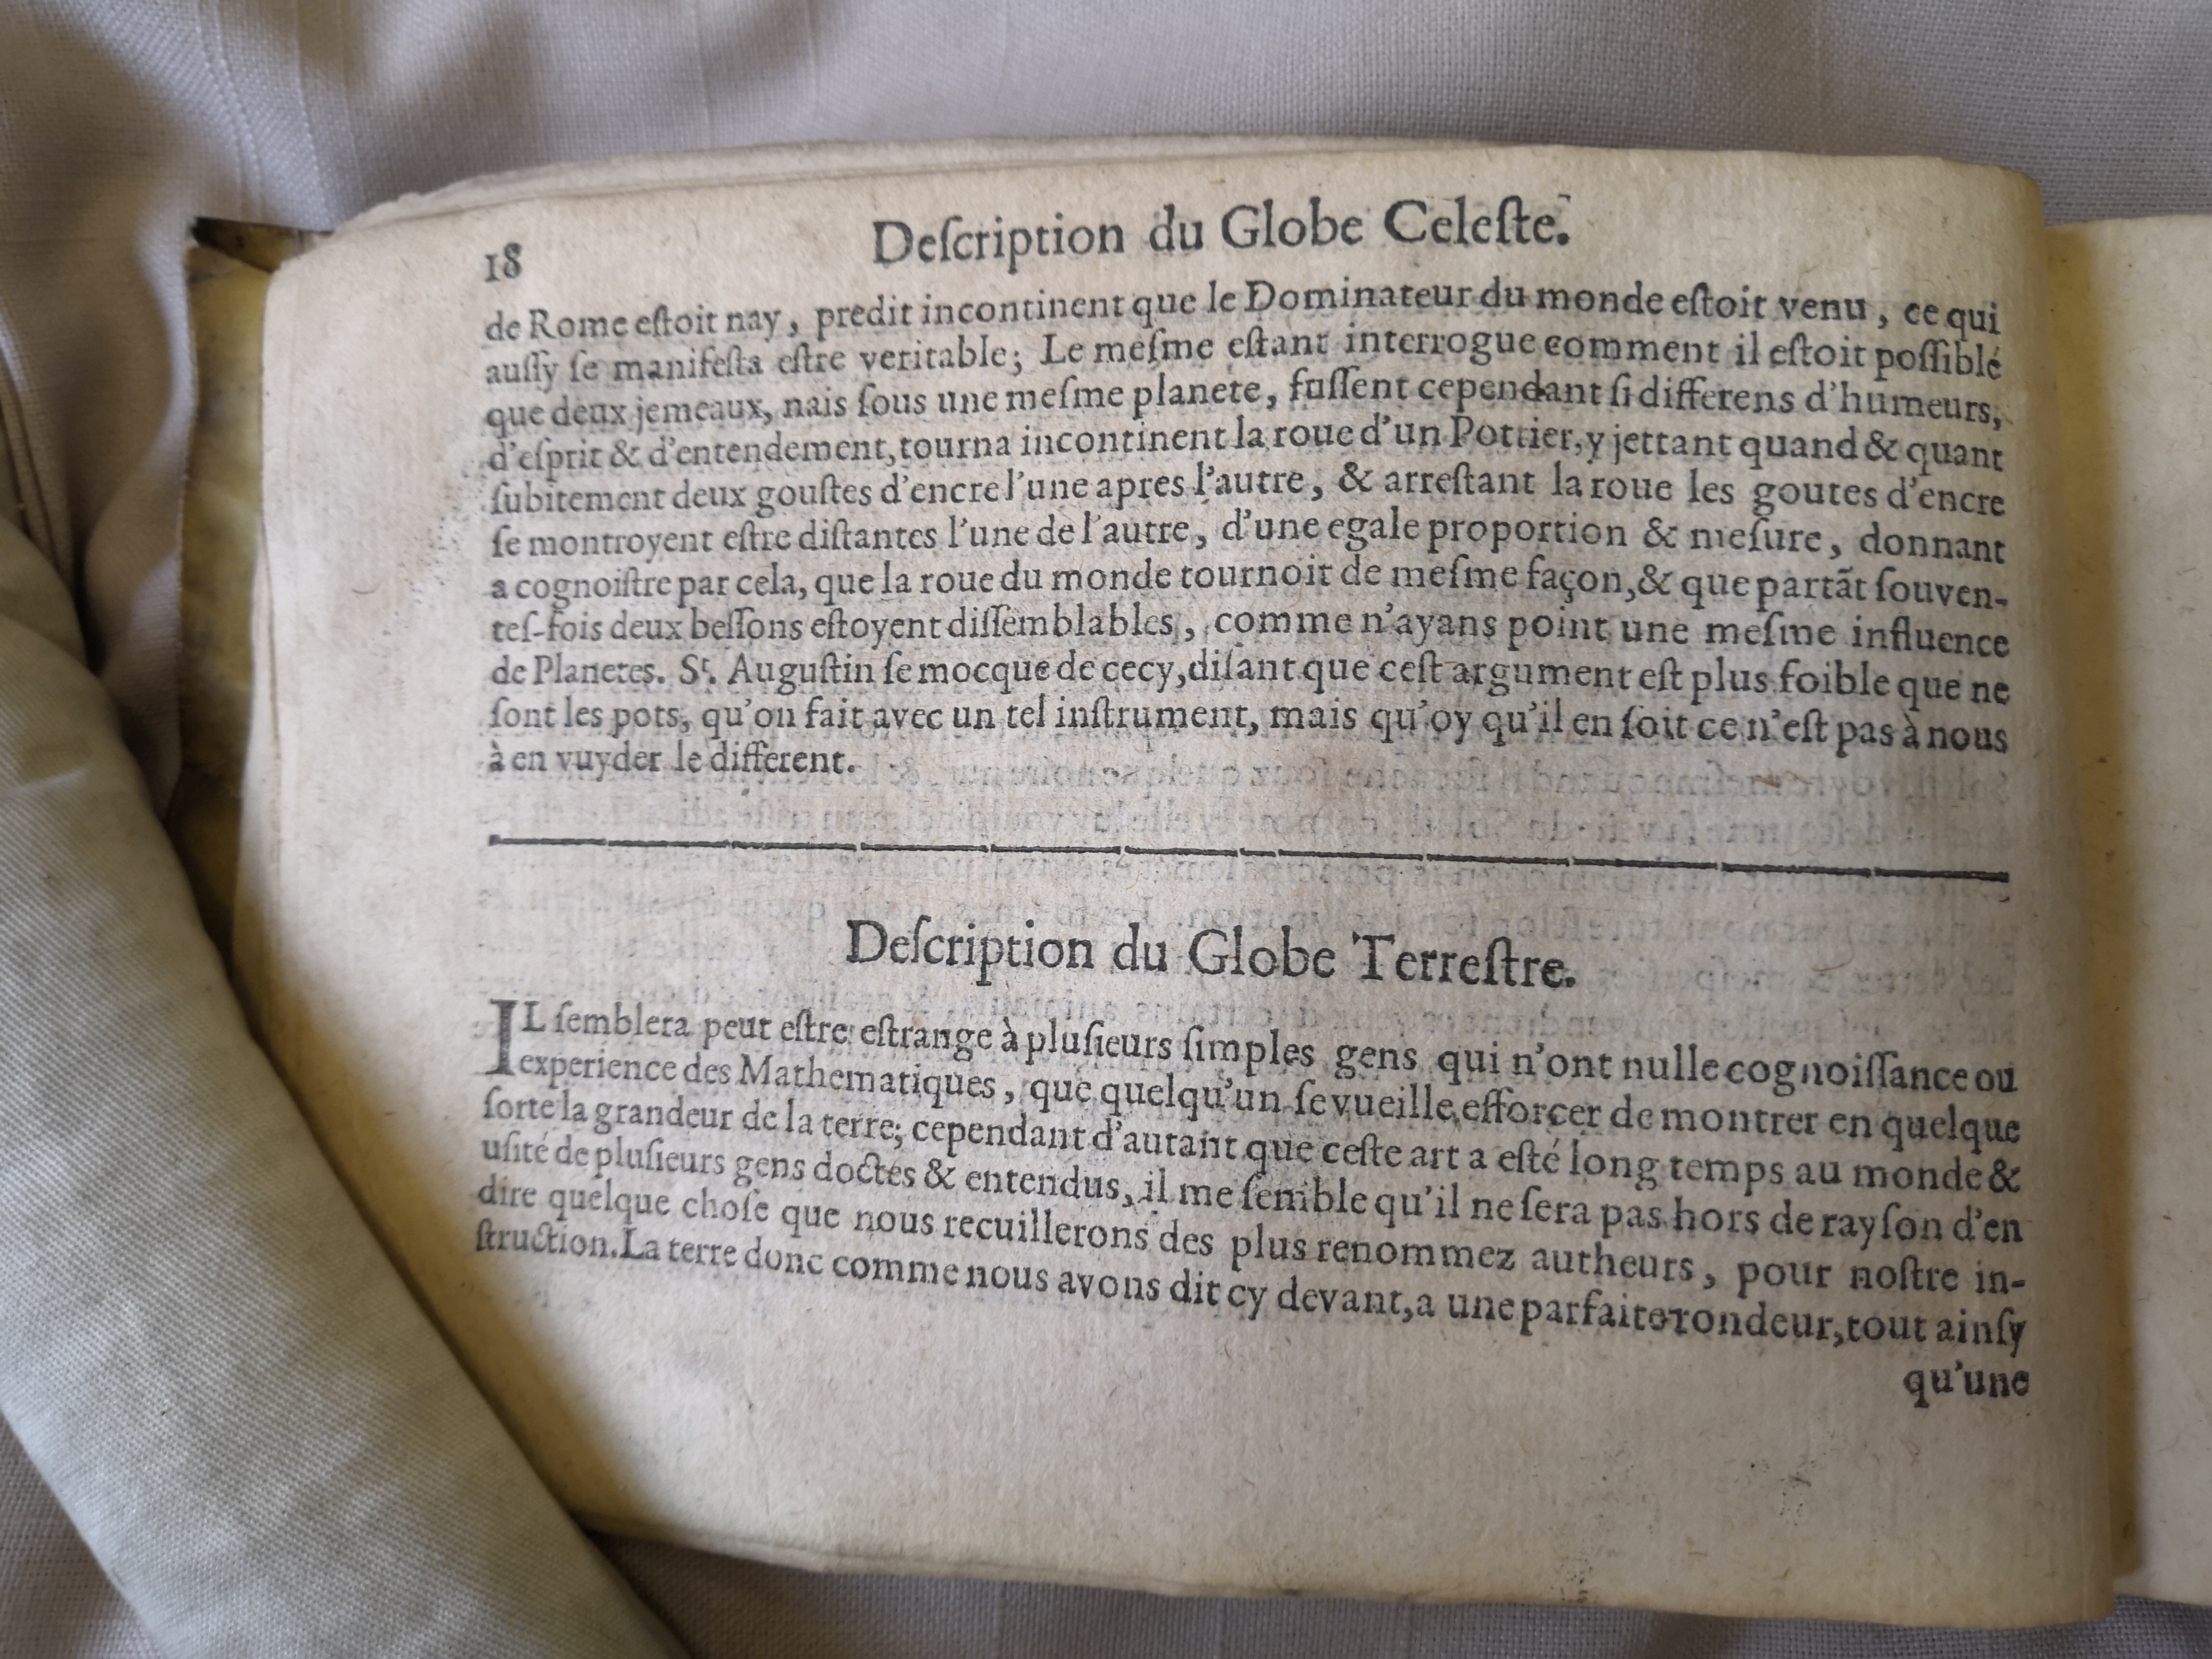 18
Deſcription du Globe Celeſte.
de Rome eſtoit nay, predit incontinent que le Dominateur du monde eſtoit venu, ce qui
auſſy ſe manifeſta eſtre veritable; Le meſme eſtant interrogue comment il eſtoit poſſiblé
que deux jemeaux, nais ſous une meſme planete, fuſſent cependant ſi differens d'humeurs,
d'eſprit & d'entendement, tourna incontinent la roue d'un Pottier, y jettant quand & quant
ſubitement deux gouſtes d'encre l'une apres l'autre, & arreſtant la roue les goutes d'encre
ſe montroyent eſtre diſtantes l'une de l'autre, d'une egale proportion & meſure, donnant
a cognoiſtre par cela, que la roue du monde tournoit de meſme façon, & que partãt ſouven-
teſ-fois deux beſſons eſtoyent diſſemblables, comme n'ayans point une meſme influence
de Planetes. St. Auguſtin ſe mocque de cecy, diſant que ceſt argument eſt plus foible que ne
ſont les pots, qu'on fait avec un tel inſtrument, mais qu'oy qu'il en ſoit ce n'eſt pas à nous
à en vuyder le different.
Deſcription du Globe Terreſtre.
IL ſemblera peut eſtre eſtrange à pluſieurs ſimples gens qui n'ont nulle cognoiſſance ou
experience des Mathematiques, que quelqu'un ſe vueille efforcer de montrer en quelque
ſorte la grandeur de la terre; cependant d'autant que ceſte art a eſté long temps au monde &
uſité de pluſieurs gens doctes & entendus, il me ſemble qu'il ne ſera pas hors de rayſon d'en
dire quelque choſe que nous recuillerons des plus renommez autheurs, pour noſtre in-
ſtruction. La terre donc comme nous avons dit cy devant, a une parfaite rondeur, tout ainſy
qu'une